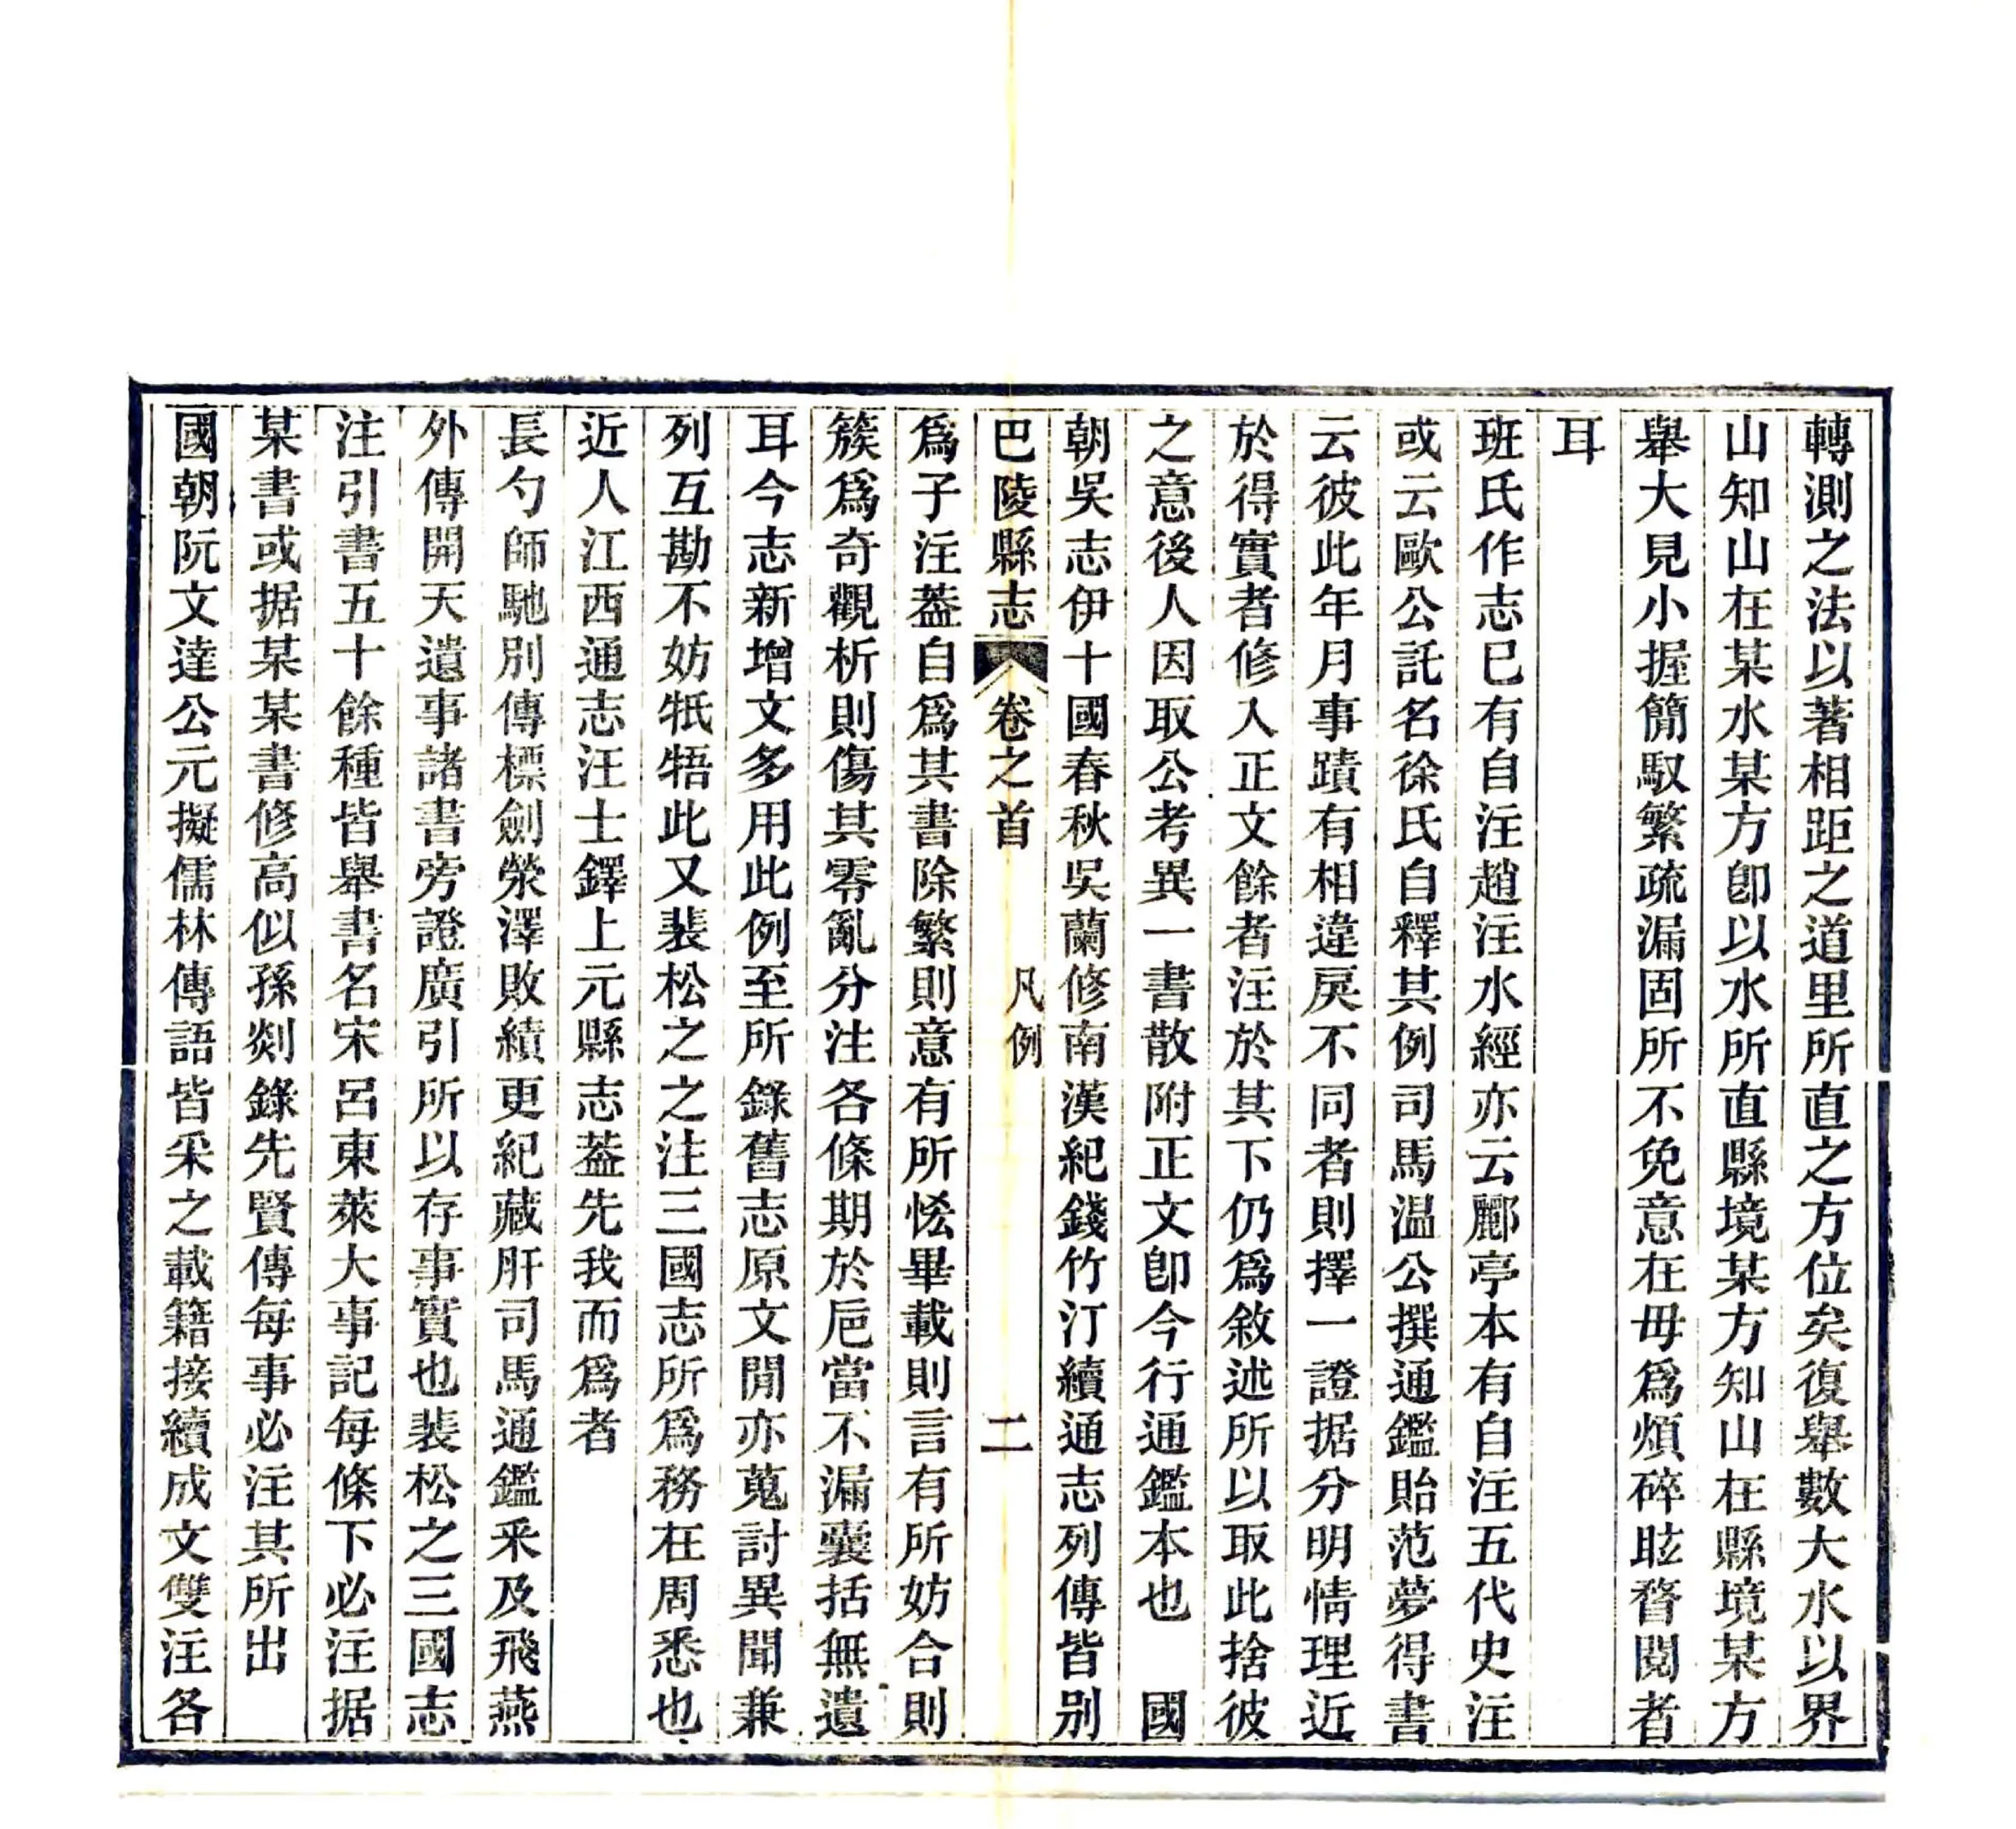 轉測之法以著相距之道里所直之方位矣復舉數大水以界
山知山在某水某方卽以水所直縣境某方知山在縣境某方
舉大見小握簡馭繁疏漏固所不免意在毋爲煩碎眩瞀閱者
耳
班氏作志巳有自注趙注水經亦云酈亭本有自注五代史注
或云歐公託名徐氏自釋其例司馬温公撰通鑑貽范夢得書
云彼此年月事蹟有相違戾不同者則擇一證据分明情理近
於得實者修入正文餘者注於其下仍爲敘述所以取此捨彼
之意後人因取公考異一書散附正文卽今行通鑑本也　國
朝吳志伊十國春秋吳蘭修南漢紀錢竹汀續通志列傳皆别
巴陵縣志　卷之首　凡例　二
爲子注葢自爲其書除繁則意有所恡畢載則言有所妨合則
簇爲奇觀析則傷其零亂分注各條期於巵當不漏囊括無遺
耳今志新增文多用此例至所錄舊志原文閒亦蒐討異聞兼
列互勘不妨牴牾此又裴松之之注三國志所爲務在周悉也
近人江西通志汪士鐸上元縣志葢先我而爲者
長勺師馳別傳標劍滎澤敗績更紀藏肝司馬通鑑采及飛燕
外傳開天遺事諸書旁證廣引所以存事實也裴松之三國志
注引書五十餘種皆舉書名宋呂東萊大事記每條下必注据
某書或据某某書修高似孫剡錄先賢傳每事必注其所出
國朝阮文達公元擬儒林傳語皆采之載籍接續成文雙注各